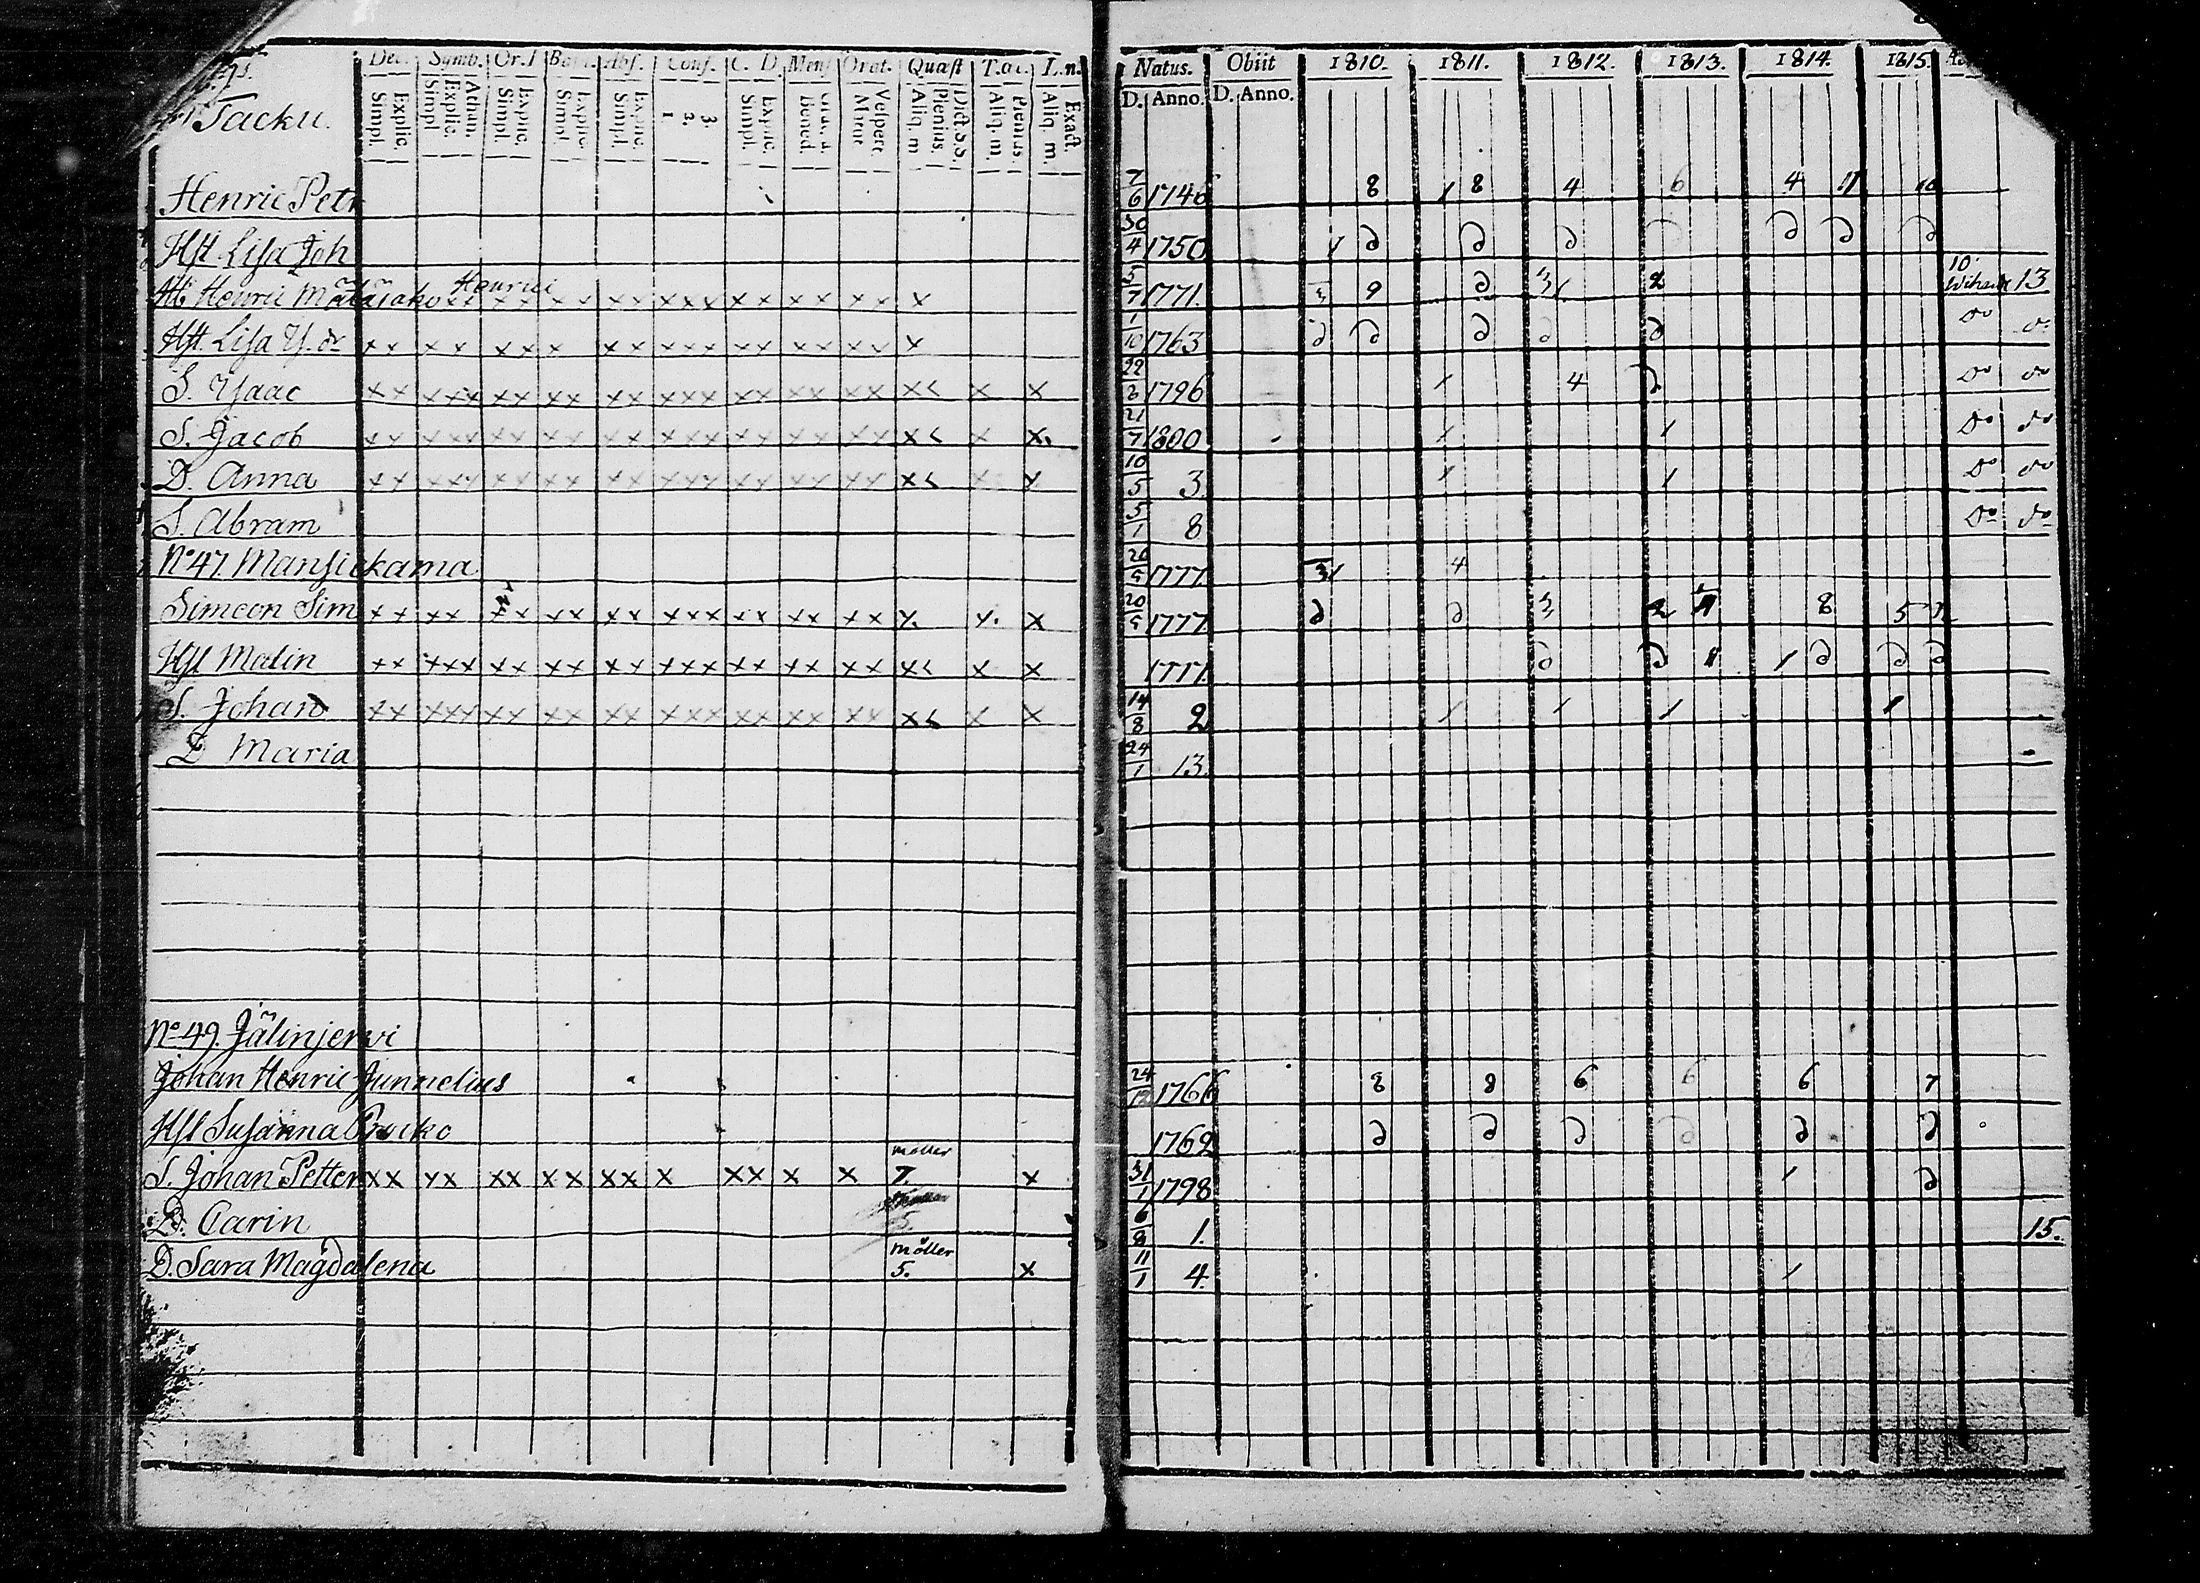 Dec. Symb. Or.1 Bapt. Abs. Conf. C. D. Mens Orat. Quæst T.æc. L.n.
Simpl. Explic. Simpl Explic. Athan. Simpl. Explic. Simpl. Explic. Simpl. Explic. 1 2. 3. Simpl. Explic. Bened. Matut Vespert. Aliq. m Plenius. Dict. S.S. Aliq. m. Plenius. Aliq. m. Exact.
Tacku.
Henric Petr
Hst Lisa Joh
Henrici
Henric Matsiaho x x x x x x x x x x x x x x x
Hst. Lisa Y. dr x x x x x x x x x x x x x x x x x x x x x
S. Ysaac x x x x x x x x x x x x x x x x x x x x x x < x x
S. Jacob x x x x x x x x x x x x x x x x x x x x x x < x x.
D. Anna x x x x x x x x x x x x x x x x x x x x x x < x x
S. Abram
No 47. Mansickama
Simeon Sim x x x x x x x x x x x x x x x x x x x x x. x. x
Hst Malin x x x x x x x x x x x x x x x x x x x x x x < x x
S. Johan x x x x x x x x x x x x x x x x x x x x x x < x x
D Maria
No 49. Jälinjerwi
Johan Henric Junnelius
Hst Susanna
möller
S. Johan Petter x x x x x x x x x x x x x x x 7. x
D. Carin
möller
D. Sara Magdalena 5. x
Natus. Obiit 1810. 1811. 1812. 1813. 1814. 1815.
D. Anno. D. Anno.
7/6 1746 8 1 8 4 6 4 11 10
30/4 1750 1 d d d d d d d
5/7 1771. 3 9 d 3 1 2 10 13
1/10 1763 d d d d d do do
22/2 1796 1 4 d do do
21/7 1800 1 1 do do
10/5 3 1 1 do do
5/1 8 do do
20/5 1777 31 4
20/5 1777 d d 3 2 11 8 5
1777. d d 11 1 d d d
14/8 2 1 1 1 1
24/1 13.
24/12 1766 8 8 6 6 6 7
1762 d d d d d d
31/1 1798 1 d
6/8 1. 15.
11/1 4. 1